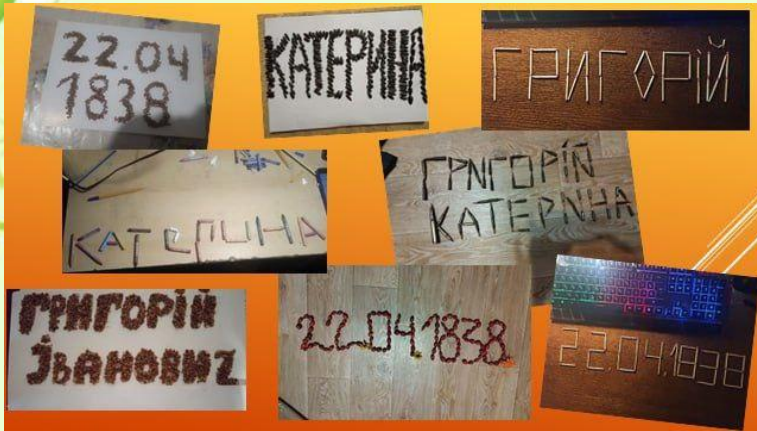 22.04
1838
КАТЕРИНА
ГРИГОРІЙ
КАТЕРИНА
ГРИГОРІЙ
КАТЕРИНА
ГРИГОРІЙ
ІВАНОВИЧ
22.04.1838
22.04.1838